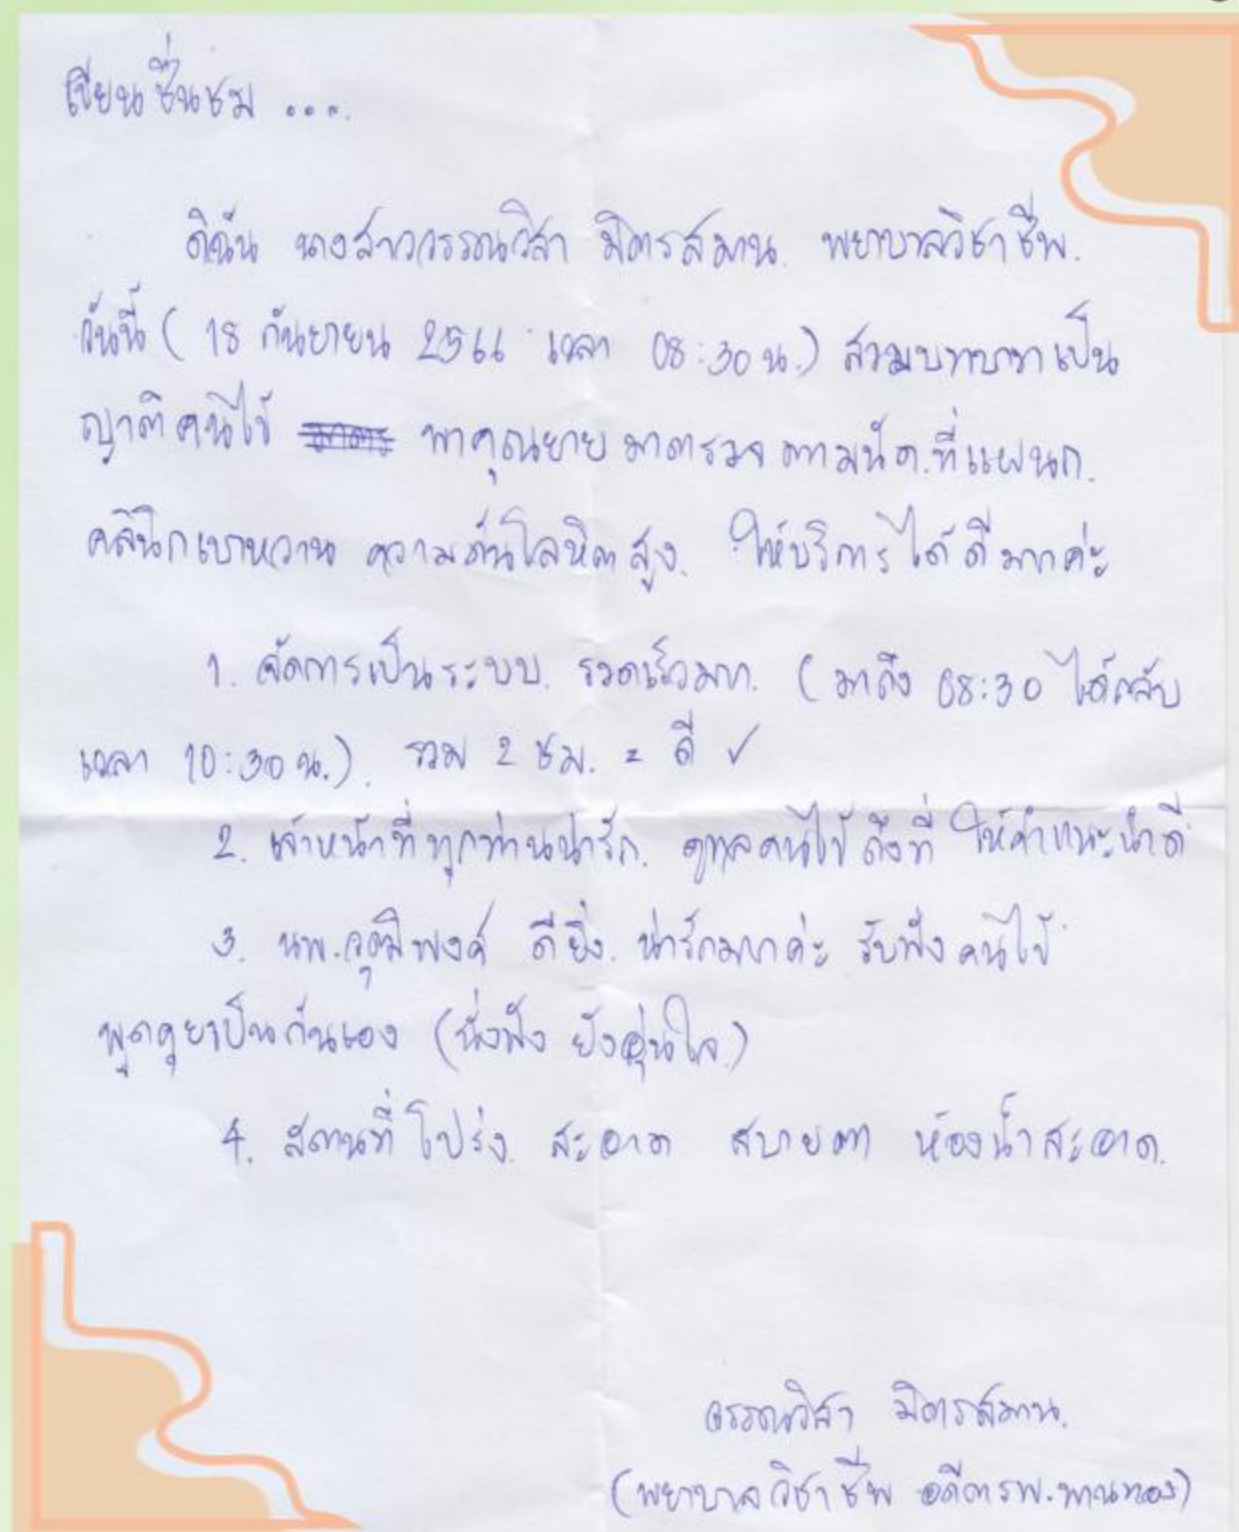 เขียนชื่นชม ....
ดิฉัน นางสาววรรณวิสา มิตรสมาน. พยาบาลวิชาชีพ.
วันนี้ ( 18 กันยายน 2566 เวลา 08:30 น.) สวมบทบาทเป็น
ญาติคนไข้ พาคุณยายมาตรวจตามนัด.ที่แผนก.
คลินิกเบาหวาน ความดันโลหิตสูง. ให้บริการได้ดีมากค่ะ
1. จัดการเป็นระบบ. รวดเร็วมาก. (มาถึง 08:30 ได้กลับ
เวลา 10:30 น.). รวม 2 ชม. = ดี ✓
2. เจ้าหน้าที่ทุกท่านน่ารัก. ดูแลคนไข้ถึงที่ ให้คำแนะนำดี
3. นพ.วุฒิพงศ์ ดียิ่ง. น่ารักมากค่ะ รับฟังคนไข้
พูดคุยเป็นกันเอง (นั่งฟัง ยังอุ่นใจ.)
4. สถานที่โปร่ง. สะอาด สบายตา ห้องน้ำสะอาด.
วรรณวิสา มิตรสมาน.
(พยาบาลวิชาชีพ อดีตรพ.พานทอง)